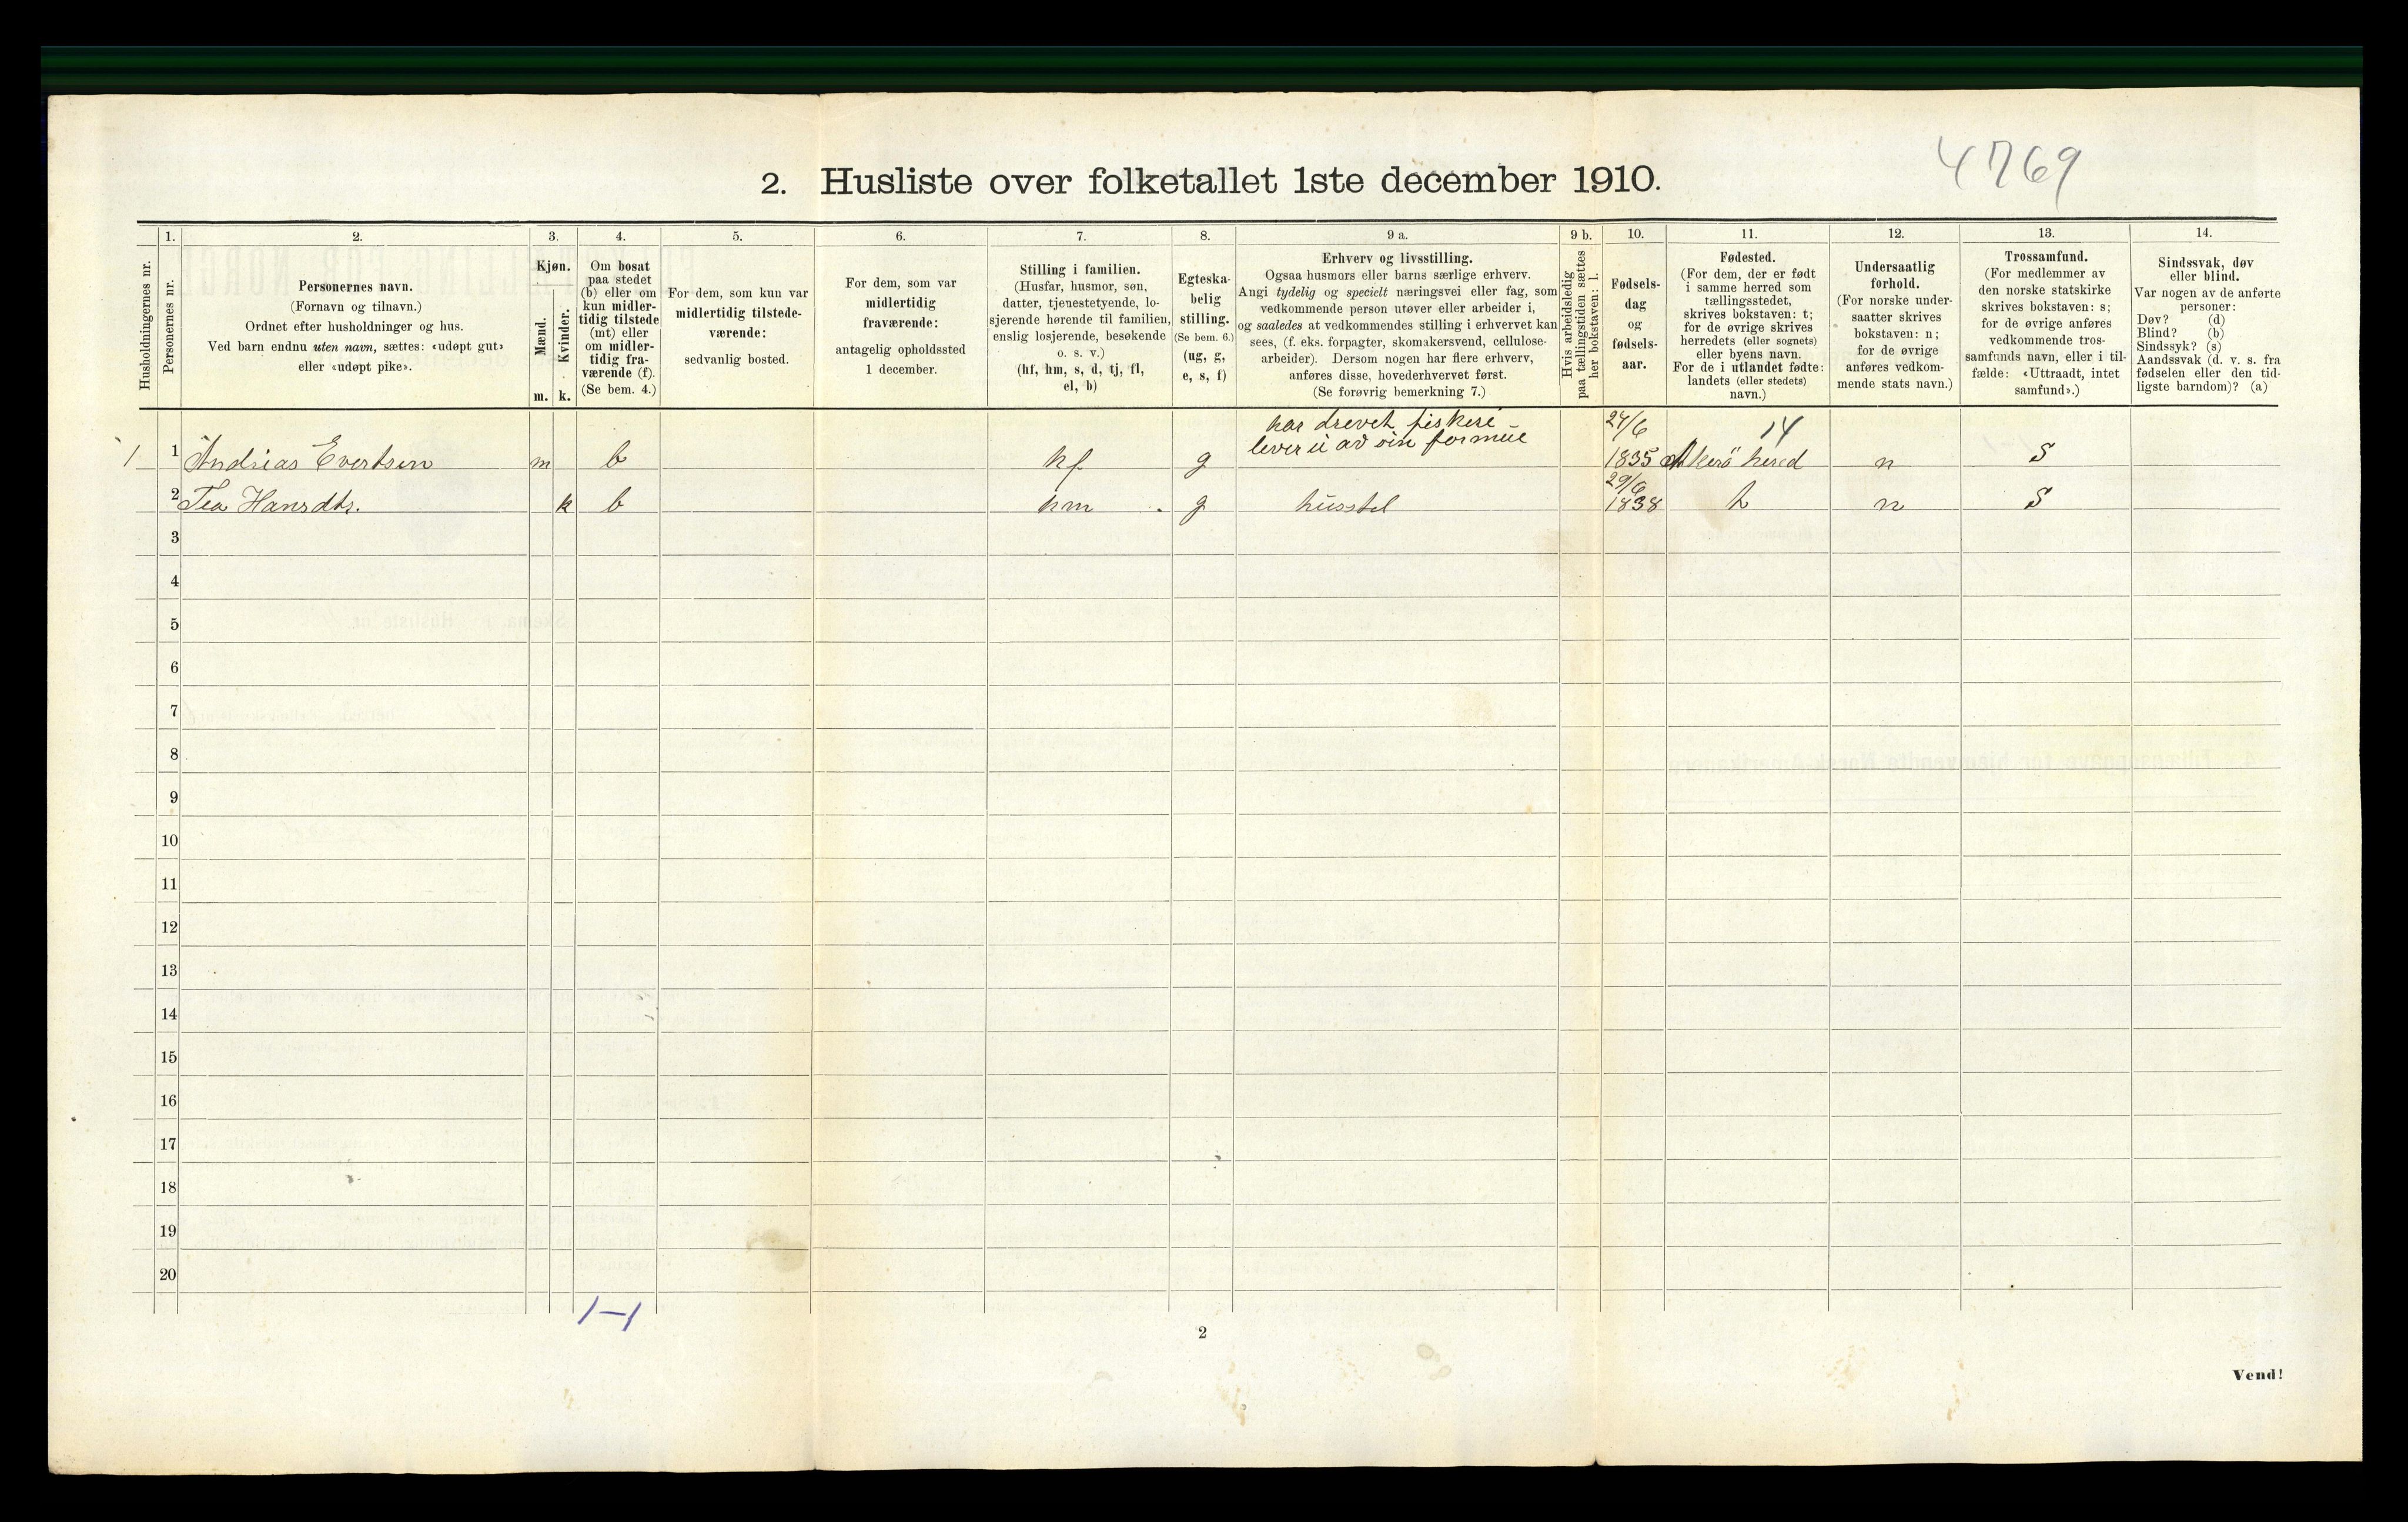 4769
2. Husliste over folketallet 1ste december 1910.
Husholdningernes nr.
1.
Personernes nr.
2.
Personernes navn.
(Fornavn og tilnavn.)
Ordnet efter husholdninger og hus.
Ved barn endnu uten navn, sættes: «udøpt gut»
eller «udøpt pike».
3.
Kjøn.
Mænd.
Kvinder.
m. k.
4.
Om bosat
paa stedet
(b) eller om
kun midler-
tidig tilstede
(mt) eller
om midler-
tidig fra-
værende (f).
(Se bem. 4.)
5.
For dem, som kun var
midlertidig tilstede-
værende:
sedvanlig bosted.
6.
For dem, som var
midlertidig
fraværende:
antagelig opholdssted
1 december.
7.
Stilling i familien.
(Husfar, husmor, søn,
datter, tjenestetyende, lo-
sjerende hørende til familien,
enslig losjerende, besøkende
o. s. v.)
(hf, hm, s, d, tj, fl,
el, b)
8.
Egteska-
belig
stilling.
(Se bem. 6.)
(ug, g,
e, s, f)
9 a.
Erhverv og livsstilling.
Ogsaa husmors eller barns særlige erhverv.
Angi tydelig og specielt næringsvei eller fag, som
vedkommende person utøver eller arbeider i,
og saaledes at vedkommendes stilling i erhvervet kan
sees, (f. eks. forpagter, skomakersvend, cellulose-
arbeider). Dersom nogen har flere erhverv,
anføres disse, hovederhvervet først.
(Se forøvrig bemerkning 7.)
9 b.
Hvis arbeidsledig
paa tællingstiden sættes
her bokstaven: l.
10.
Fødsels-
dag
og
fødsels-
aar.
11.
Fødested.
(For dem, der er født
i samme herred som
tællingsstedet,
skrives bokstaven: t;
for de øvrige skrives
herredets (eller sognets)
eller byens navn.
For de i utlandet fødte:
landets (eller stedets)
navn.)
12.
Undersaatlig
forhold.
(For norske under-
saatter skrives
bokstaven: n;
for de øvrige
anføres vedkom-
mende stats navn.)
13.
Trossamfund.
(For medlemmer av
den norske statskirke
skrives bokstaven: s;
for de øvrige anføres
vedkommende tros-
samfunds navn, eller i til-
fælde: «Uttraadt, intet
samfund».)
14.
Sindssvak, døv
eller blind.
Var nogen av de anførte
personer:
Døv? (d)
Blind? (b)
Sindssyk? (s)
Aandssvak (d. v. s. fra
fødselen eller den tid-
ligste barndom)? (a)
har drevet fiskeri 24/6 14
1 1 Andrias Evertsen m b hf g lever ū av sin formūe 1835 Akerö herred n S
29/6
2 Tea Hansdtr. k b hm g hūsstel 1838 t n S
3
4
5
6
7
8
9
10
11
12
13
14
15
16
17
18
19
20
1-1
2
Vend!